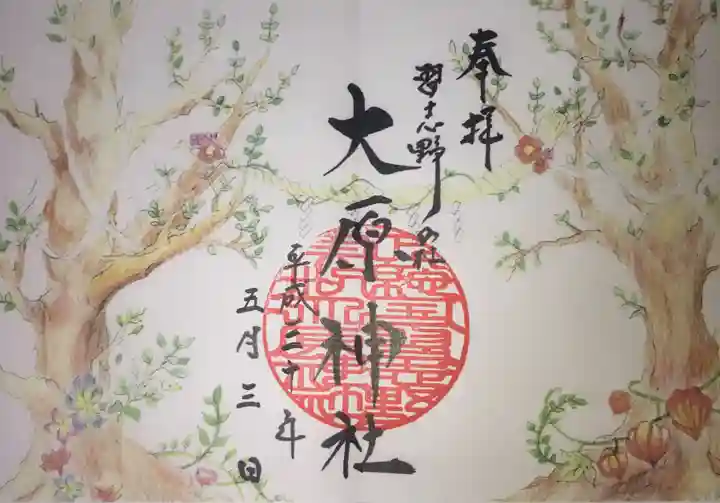 奉拝
習志野の社
大原神社
平成三十年
五月三日